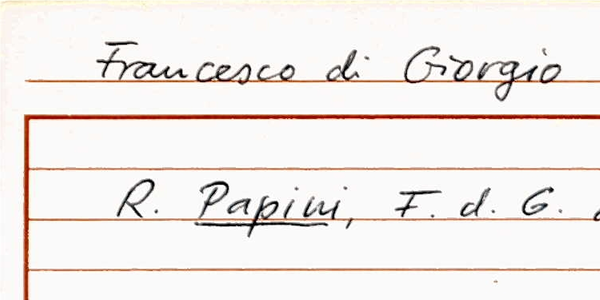 Francesco di Giorgio
R. Papini, F. d. G.